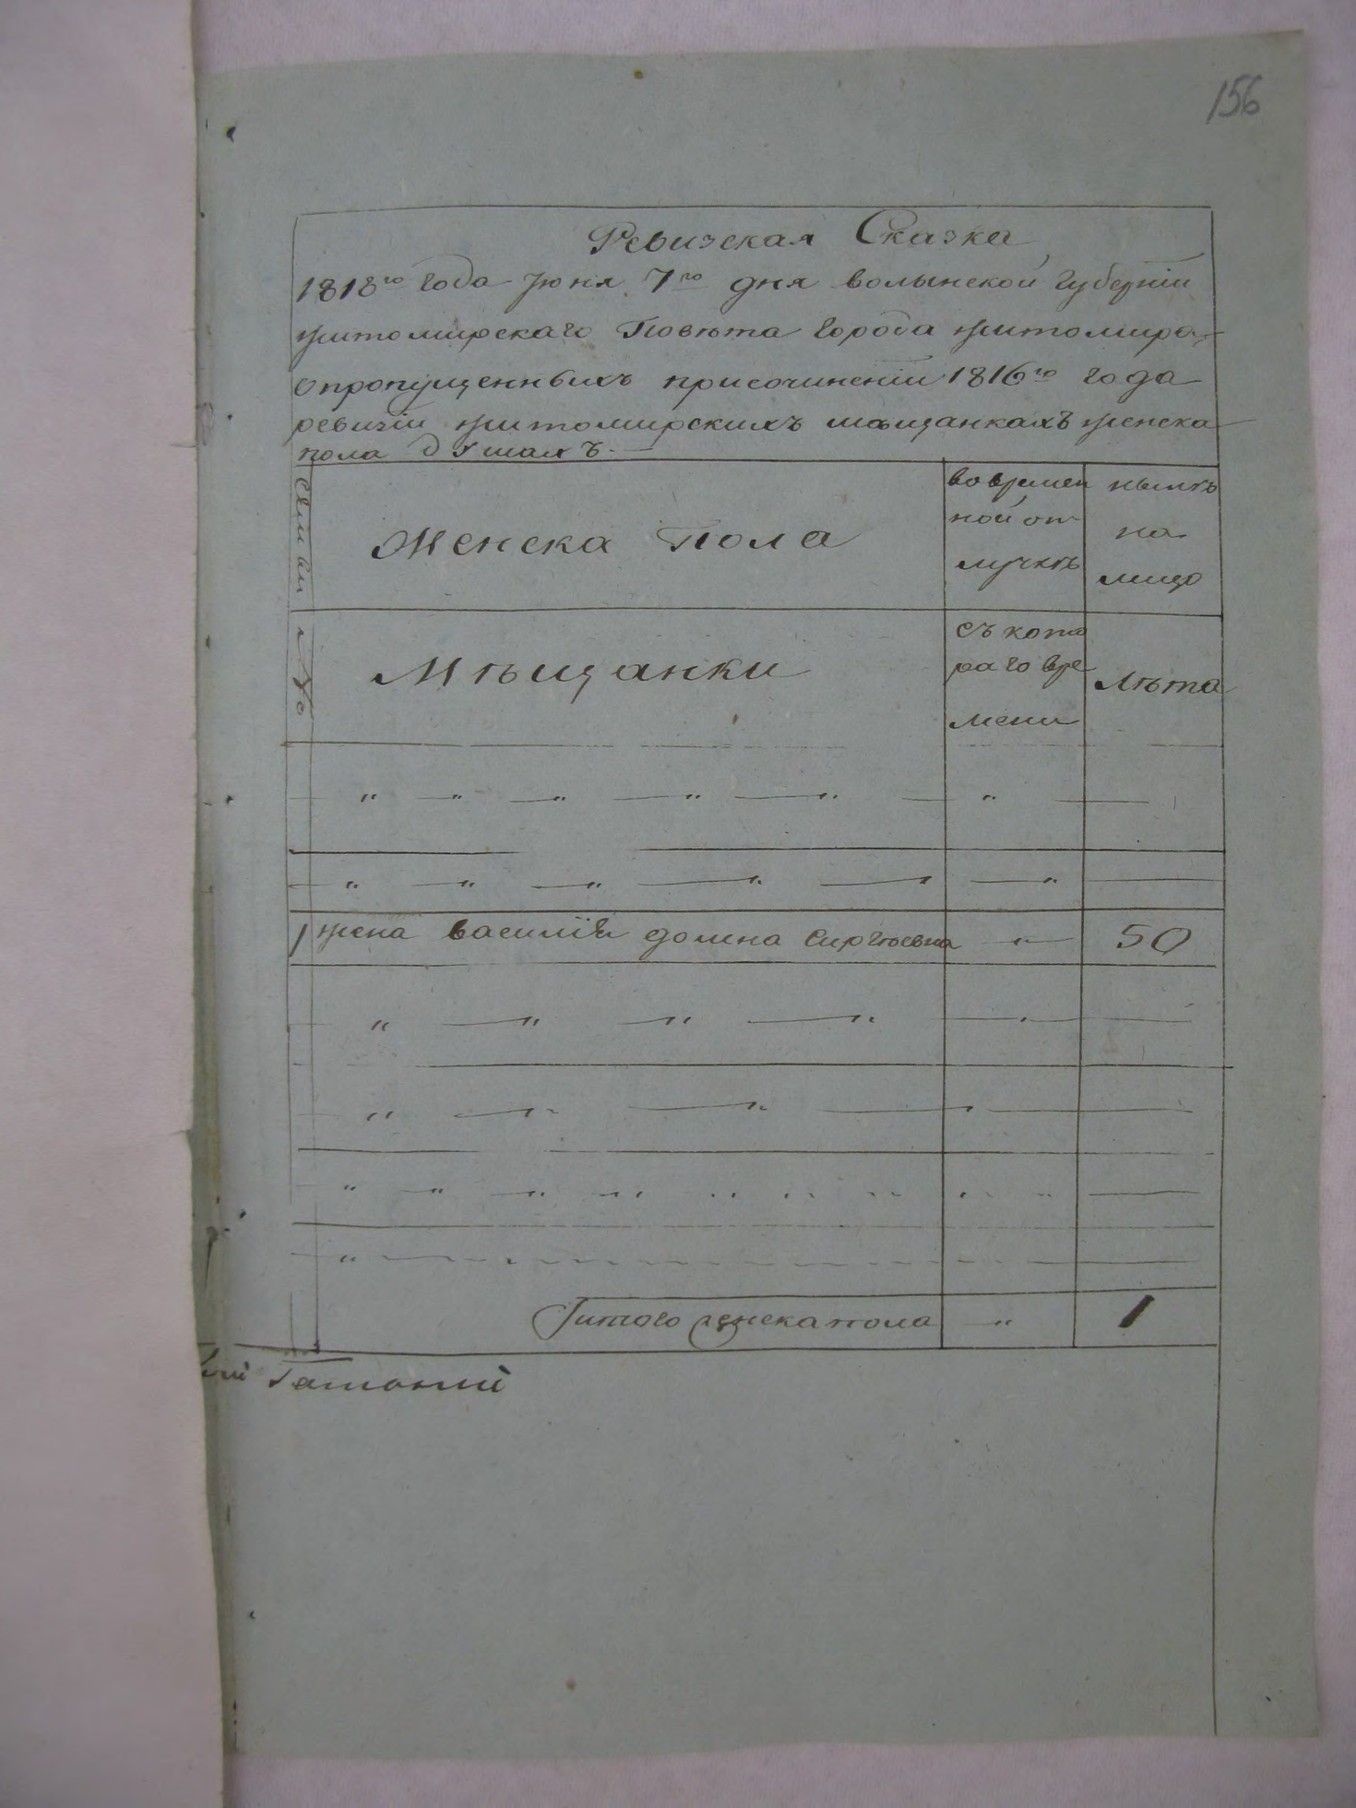 156
Ревизская Сказка
1818го года Июня 7го дня волынской Губернии
житомирскаго Повета города житомира
опропущенныхъ присочинении 1816го года
ревизии житомирскихъ мещанкахъ женска
пола душахъ.
Семьи
Женска Пола
вовремен
ной от
лучке
ныне
на
лицо
№
Мѣщанки
съ кото
раго вре
мени
Лѣта
1 жена василия домна Сиргеевна " 50
Итого женска пола " 1